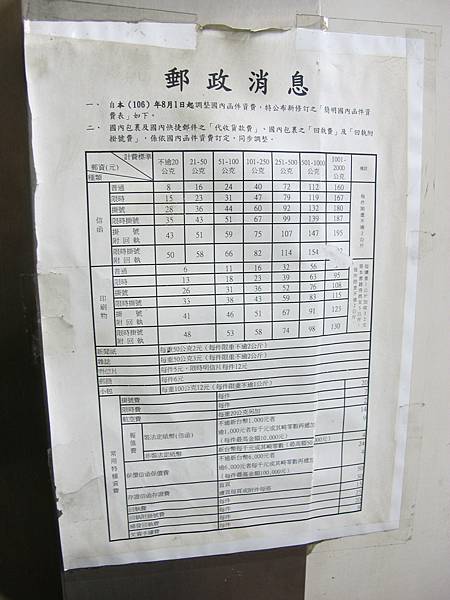 郵政消息
一、自本(106)年8月1日起調整國內函件資費，特公布新修訂之「簡明國內函件資
費表」如下。
二、國內包裹及國內快捷郵件之「代收貨款費」、國內包裹之「回執費」及「回執附
掛號費」，係依國內函件資費訂定，同步調整。
計費標準
郵資(元)
種類
不逾20公克 21-50公克 51-100公克 101-250公克 251-500公克 501-1000公克 1001-2000公克 備註
信函
普通 8 16 24 40 72 112 160
限時 15 23 31 47 79 119 167
掛號 28 36 44 60 92 132 180
限時掛號 35 43 51 67 99 139 187
掛號附回執 43 51 59 75 107 147 195
限時掛號附回執 50 58 66 82 114 154
每件限重不逾2公斤
印刷物
普通 6 11 16 32 56
限時 13 18 23 39 63 95
掛號 26 31 36 52 76 108
限時掛號 33 38 43 59 83 115
掛號附回執 41 46 51 67 91 123
限時掛號附回執 48 53 58 74 98 130
新聞紙 每重50公克2元（每件限重不逾2公斤）
雜誌 每重50公克3元（每件限重不逾2公斤）
明信片 每件5元，限時明信片每件12元
郵簡 每件6元
小包 每重100公克12元（每件限重不逾1公斤）
常用特種資費
掛號費 每件 20
限時費 每件
航空費 每重20公克另加
報值費
裝法定紙幣(信函)
不逾新台幣1,000元者
逾1,000元者每千元或其畸零數再遞加
（每件最高金額10,000元）
非裝法定紙幣
保價信函保價費
不逾新台幣6,000元者
逾6,000元者每千元或其畸零數再遞加
（每件最高金額100,000元）
存證信函存證費
首頁
續頁每頁或附件每張
回執費 每件
回執附掛號費 每件
補發回執費 每件
每件